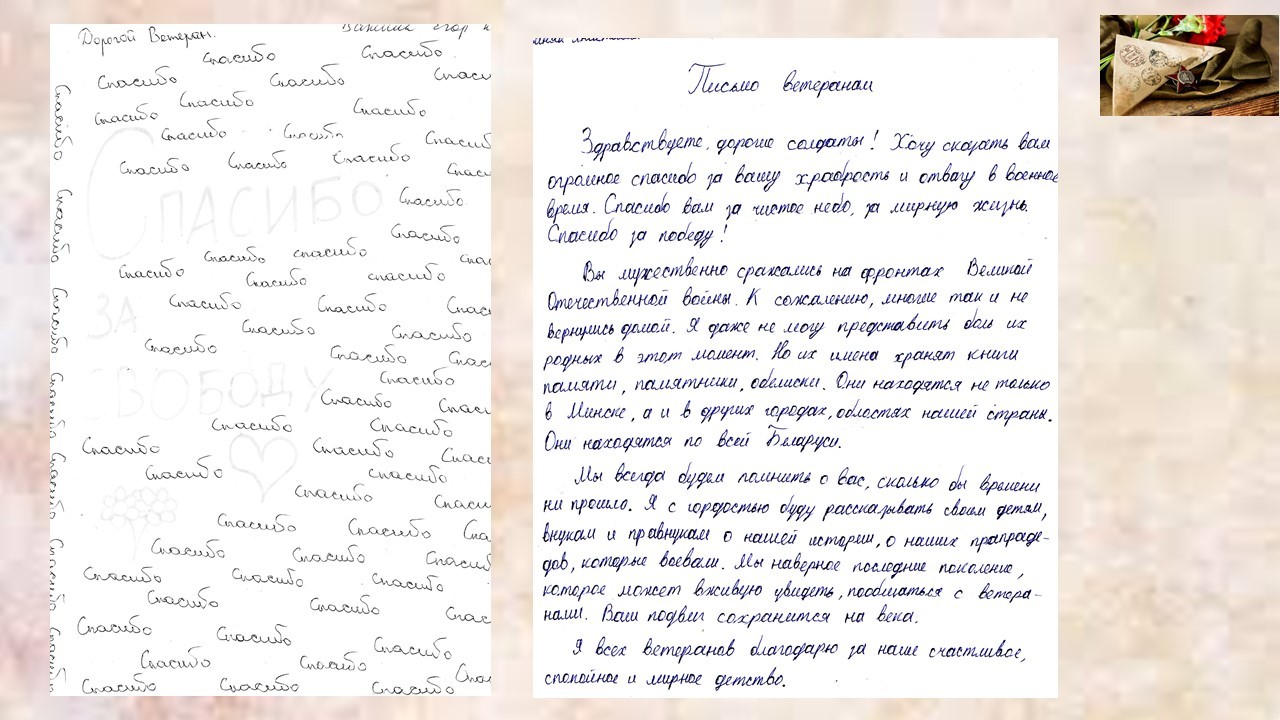 Дорогой Ветеран.
Егор
Спасибо Спасибо
Спасибо Спасибо Спаси
Спасибо Спасибо
Спасибо
Спасибо Спасибо Спасиб
Спасибо Спасибо Спасибо Спас
Спасибо
Спасибо
Спасибо спасибо Спа
Спасибо Спасибо спасибо
Спасибо Спасибо Спас
Спасибо Спасибо
Спасибо Спасибо Спас
Спасибо
Спасибо Спаси
Спасибо Спасибо
Спасибо Спасибо Спас
Спасибо спасибо
Спасибо Спаси
Спасибо Спасибо Спа
Спасибо Спасибо Спасиб
Спасибо Спасибо Спасибо
Спасибо Спасибо Спас
Спасибо Спасибо Спасибо
Спасибо Спасибо Спа
Спасибо Спасибо Спасибо
Спасибо
Спасибо
Спасибо
Спасибо
Спасибо
Спасибо
Спасибо
СПАСИБО
ЗА
СВОБОДУ
Письмо ветеранам
Здравствуете, дорогие солдаты! Хочу сказать вам
огромное спасибо за вашу храбрость и отвагу в военное
время. Спасибо вам за чистое небо, за мирную жизнь.
Спасибо за победу!
Вы мужественно сражались на фронтах Великой
Отечественной войны. К сожалению, многие так и не
вернулись домой. Я даже не могу представить боль их
родных в этот момент. Но их имена хранят книги
памяти, памятники, обелиски. Они находятся не только
в Минске, а и в других городах, областях нашей страны.
Они находятся по всей Беларуси.
Мы всегда будем помнить о вас, сколько бы времени
ни прошло. Я с гордостью буду рассказывать своим детям,
внукам и правнукам о нашей истории, о наших прапраде-
дов, которые воевали. Мы наверное последние поколение,
которое может вживую увидеть, пообщаться с ветера-
нами. Ваш подвиг сохранится на века.
Я всех ветеранов благодарю за наше счастливое,
спокойное и мирное детство.